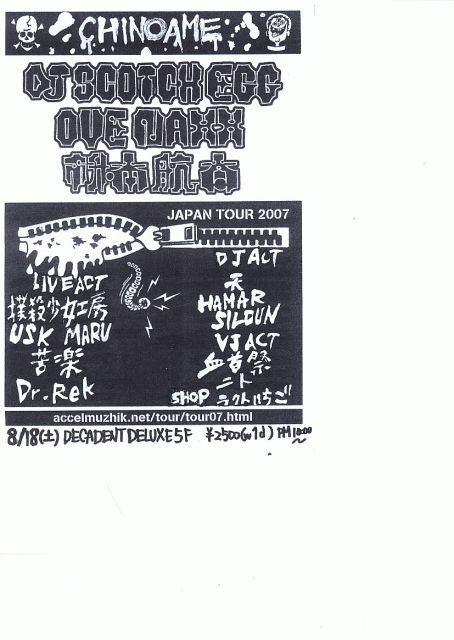 CHINOAME
DJ SCOTCH EGG
OVE NAXX
JAPAN TOUR 2007
LIVE ACT
撲殺少女工房
USK MARU
苦楽
Dr.Rek
DJ ACT
天
HAMAR
SILGUN
VJ ACT
血首祭
ニト
SHOP ラクトいちご
accelmuzhik.net/tour/tour07.html
8/18(土) DECADENT DELUXE 5F ¥2500(w1d) PM10:00~